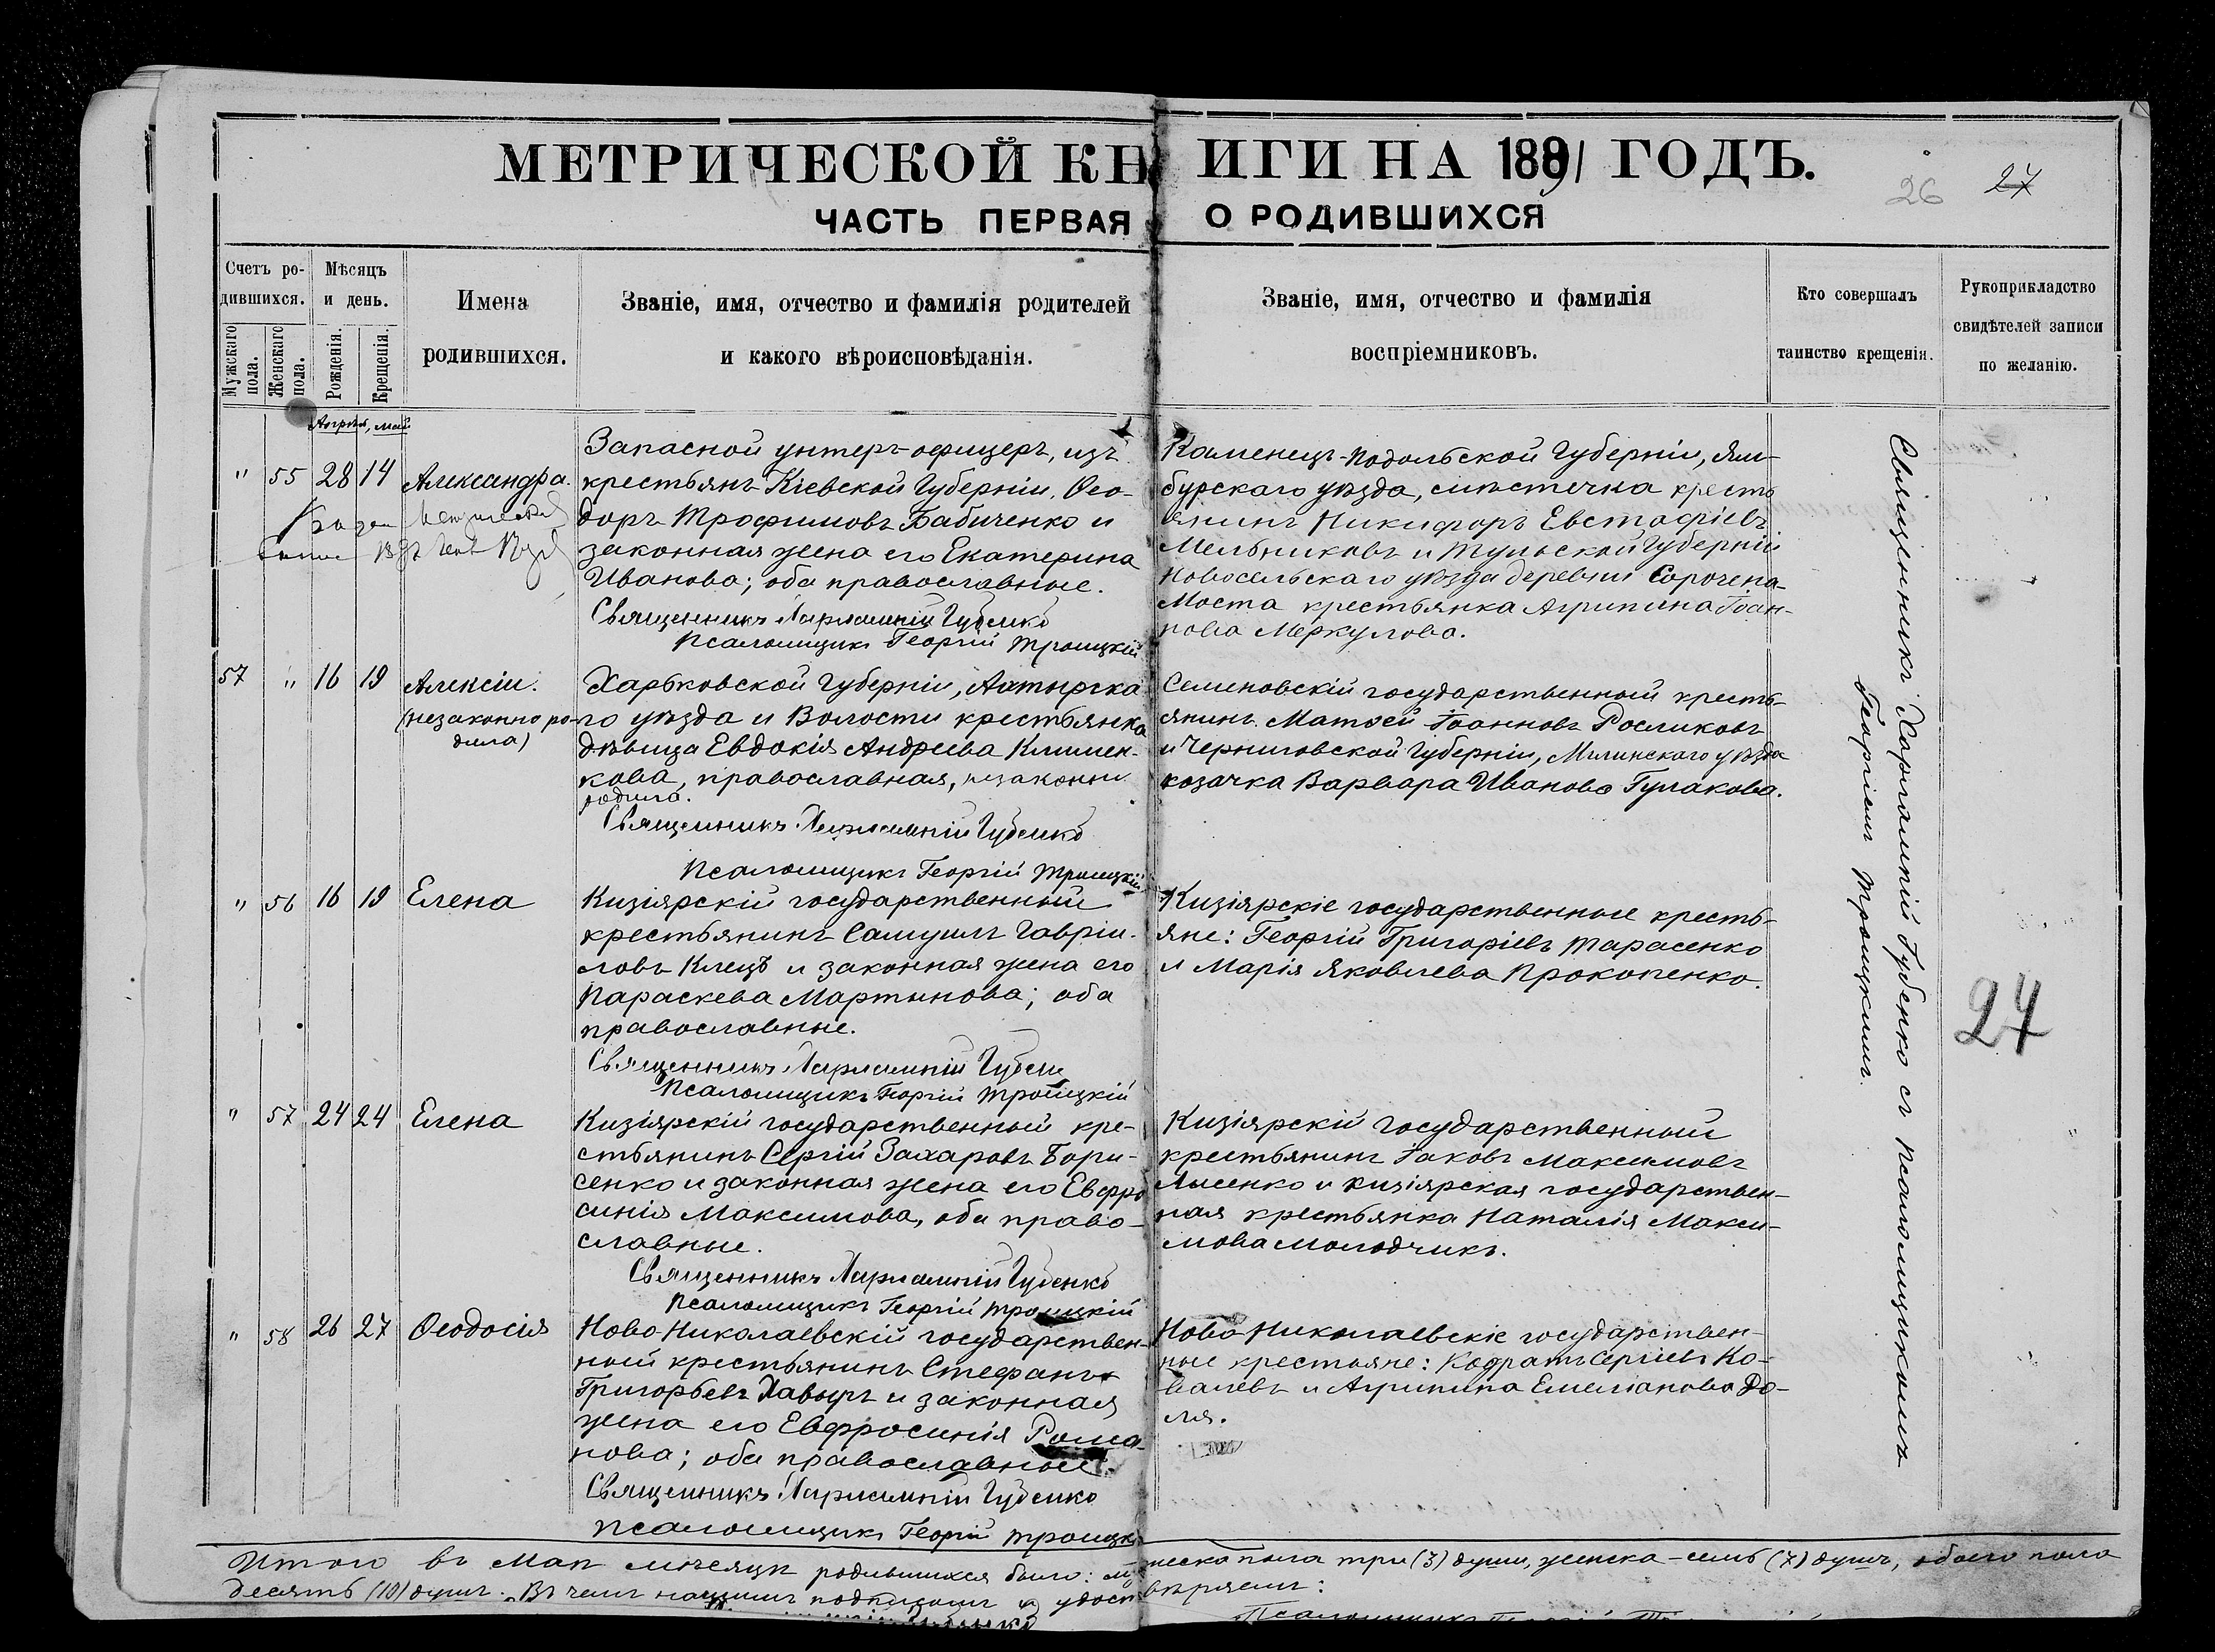 МЕТРИЧЕСКОЙ КНИГИ НА 1891 ГОДЪ.
26 27
ЧАСТЬ ПЕРВАЯ О РОДИВШИХСЯ
Счетъ родившихся.
Мужскаго пола.
Женскаго пола.
Мѣсяцъ и день.
Рожденія.
Крещенія.
Имена родившихся.
Званіе, имя, отчество и фамилія родителей
и какого вѣроисповѣданія.
Званіе, имя, отчество и фамилія
воспріемниковъ.
Кто совершалъ
таинство крещенія.
Рукоприкладство
свидѣтелей записи
по желанію.
Апрѣля, Май
" 55 28 14 Александра.
Запасной унтеръ-офицеръ, изъ
крестьянъ Кіевской Губерніи, Ѳео-
доръ Трофимовъ Бабиченко и
законная жена его Екатерина
Иванова; оба православные.
Священникъ Харлампій Губенко
Псаломщикъ Георгій Троицкій
Каменецъ-Подольской Губерніи, Ям-
бурскаго уѣзда, мѣстечка кресть
янинъ Никифоръ Евстафіевъ
Мельниковъ и Тульской Губерніи
Новосельскаго уѣзда деревни Сорочена-
Моста крестьянка Агрипина Іоан-
нова Меркулова.
57 " 16 19 Алексіи.
(незаконно ро-
дила)
Харьковской Губерніи, Ахтырска
го уѣзда и Волости крестьянка
дѣвица Евдокія Андреева Климен-
кова, православная, незаконно
родила.
Священникъ Харлампій Губенко
Псаломщикъ Георгій Троицкій
Семеновскій государственный кресть-
янинъ Матѳей Іоанновъ Росликовъ
и Черниговской Губерніи, Мглинскаго уѣзда
козачка Варвара Иванова Гулакова.
" 56 16 19 Елена
Кизіярскій государственный
крестьянинъ Самуилъ Гавріи-
ловъ Клецъ и законная жена его
Параскева Мартынова; оба
православные.
Священникъ Харлампій Губенко
Псаломщикъ Георгій Троицкій
Кизіярскіе государственные кресть-
яне: Георгій Григоріевъ Тарасенко
и Марія Яковлева Прокопенко.
" 57 24 24 Елена
Кизіярскій государственный кре-
стьянинъ Сергій Захаровъ Бори-
сенко и законная жена его Евфро
синія Максимова, оба право-
славные.
Священникъ Харлампій Губенко
Псаломщикъ Георгій Троицкій
Кизіярскій государственный
крестьянинъ Іаковъ Максимовъ
Лысенко и кизіярская государствен-
ная крестьянка Наталія Макси-
мова Молодчикъ.
" 58 26 27 Ѳеодосія
Ново-Николаевскій государствен-
ный крестьянинъ Стефанъ
Григорьевъ Хавыръ и законная
жена его Евфросинія Рома-
нова; оба православные.
Священникъ Харлампій Губенко
Псаломщикъ Георгій Троицкій
Ново-Николаевскіе государствен-
ные крестьяне: Кодратъ Сергіевъ Ко-
валевъ и Агрипина Емеліанова До-
ля.
Священникъ Харлампій Губенко съ псаломщикомъ
Георгіемъ Троицкимъ.
24
Итого въ Маѣ мѣсяцѣ родившихся было: мужеска пола три (3) души, женска - семь (7) душъ, обоего пола
десять (10) душъ. Въ чемъ нашимъ подписомъ и удостовѣряемъ: